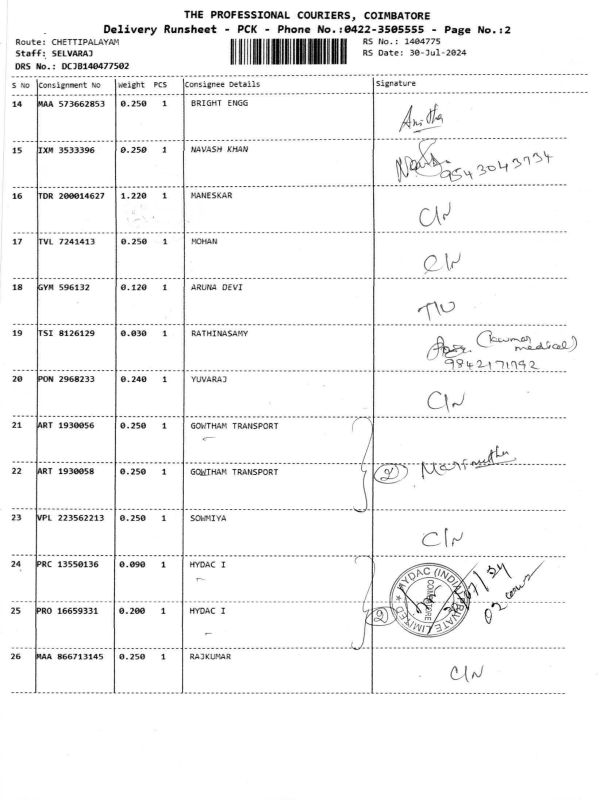 THE PROFESSIONAL COURIERS, COIMBATORE
Delivery Runsheet - PCK - Phone No.:0422-3505555 - Page No.:2
Route: CHETTIPALAYAM RS No.: 1404775
Staff: SELVARAJ RS Date: 30-Jul-2024
DRS No.: DCJB140477502
S No Consignment No Weight PCS Consignee Details Signature
14 MAA 573662853 0.250 1 BRIGHT ENGG Anitha
15 IXM 3533396 0.250 1 NAVASH KHAN 9543043734
16 TDR 200014627 1.220 1 MANESKAR C/N
17 TVL 7241413 0.250 1 MOHAN C/N
18 GYM 596132 0.120 1 ARUNA DEVI
19 TSI 8126129 0.030 1 RATHINASAMY (kumar medical)
9842171792
20 PON 2968233 0.240 1 YUVARAJ C/N
21 ART 1930056 0.250 1 GOWTHAM TRANSPORT
22 ART 1930058 0.250 1 GOWTHAM TRANSPORT (2) Marimuthu
23 VPL 223562213 0.250 1 SOWMIYA C/N
24 PRC 13550136 0.090 1 HYDAC I
HYDAC (INDIA) PRIVATE LIMITED
COIMBATORE
25 PRO 16659331 0.200 1 HYDAC I (2)
26 MAA 866713145 0.250 1 RAJKUMAR C/N